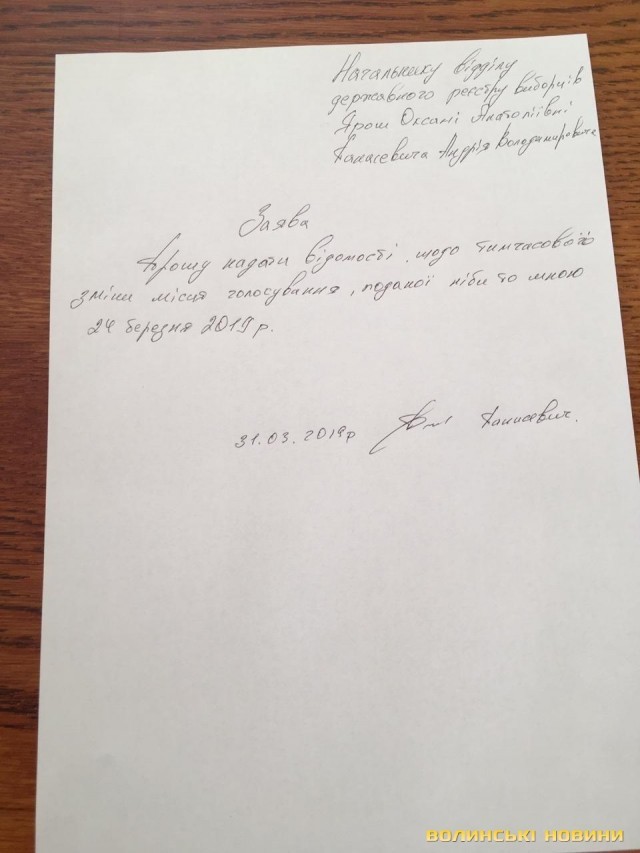 Начальнику відділу
державного реєстру виборців
Ярош Оксані Анатоліївні
Андрія Володимировича
Заява
Прошу надати відомості, щодо тимчасової
зміни місця голосування, поданої ніби то мною
24 березня 2019 р.
31.03.2019р
ВОЛИНСЬКІ НОВИНИ